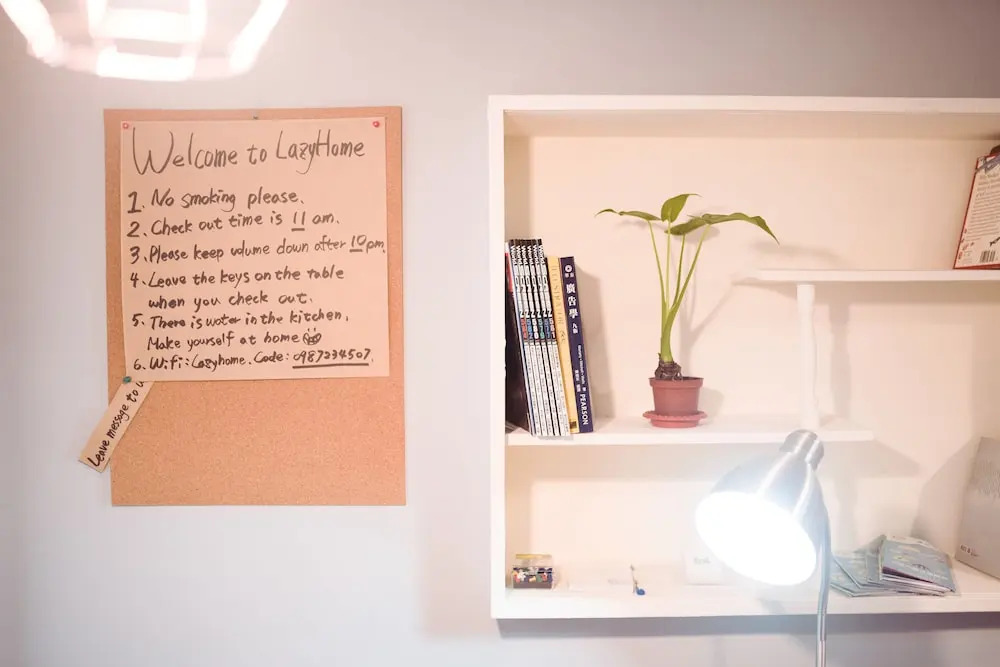 Welcome to LazyHome
1. No smoking please.
2. Check out time is 11 am.
3. Please keep volume down after 10pm.
4. Leave the keys on the table
when you check out.
5. There is water in the kitchen.
Make yourself at home
6. Wifi: Lazyhome. Code: 0987234507.
Leave message to u
廣告學
PEARSON